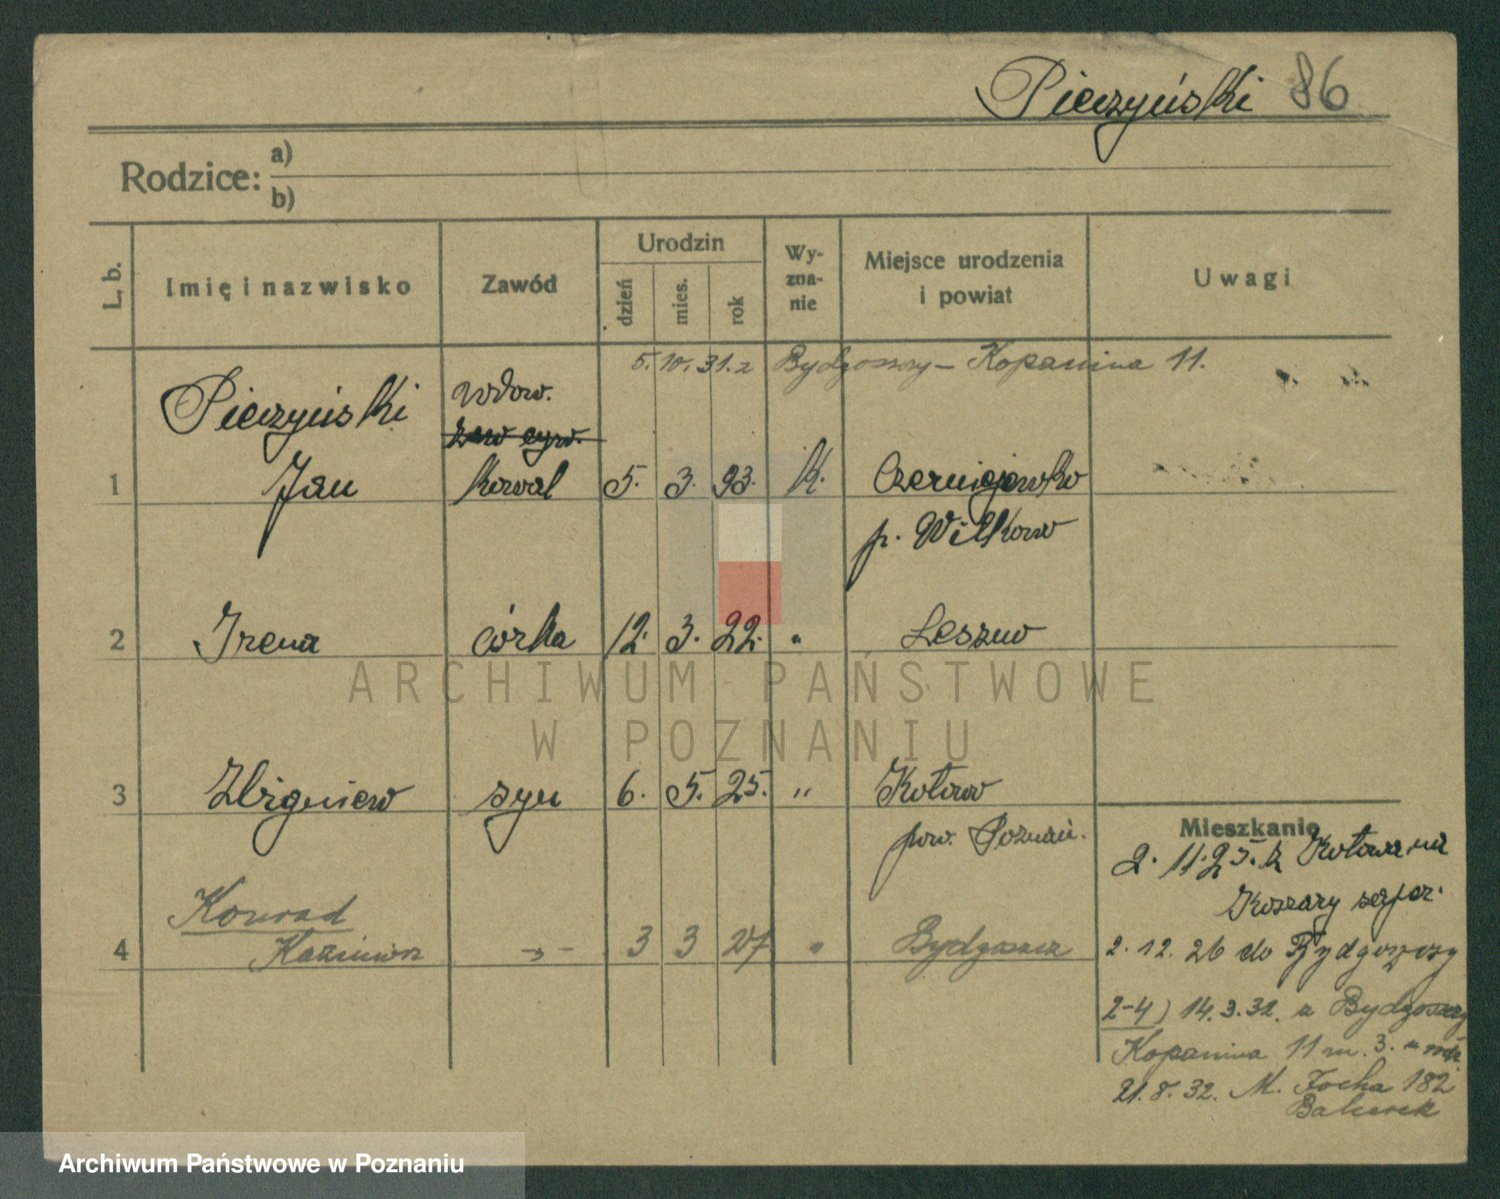 Pieczyński 86
Rodzice: a)
b)
L. b.
Imię i nazwisko
Zawód
Urodzin
dzień
mies.
rok
Wy-
zna-
nie
Miejsce urodzenia
i powiat
Uwagi
5. 10. 31. z Bydgoszczy – Kopanina 11.
Pieczyński wdow.
1 Jan kowal 5. 3. 93. k. Czerniejewko
p. Witkowo
2 Irena córka 12. 3. 22. " Leszno
ARCHIWUM PAŃSTWOWE
W POZNANIU
3 Zbigniew syn 6. 5. 25. " Kotowo
pow. Poznań.
Mieszkanie
2. 11. 25. z Kotowa na
Koszary
Konrad
4 Kazimierz 3 3 27 " Bydgoszcz
2. 12. 26 do Bydgoszczy
2-4) 14.3.32. z Bydgoszczy
Kopanina 11 m. 3.
21.8.32. M. Focha 182
Archiwum Państwowe w Poznaniu